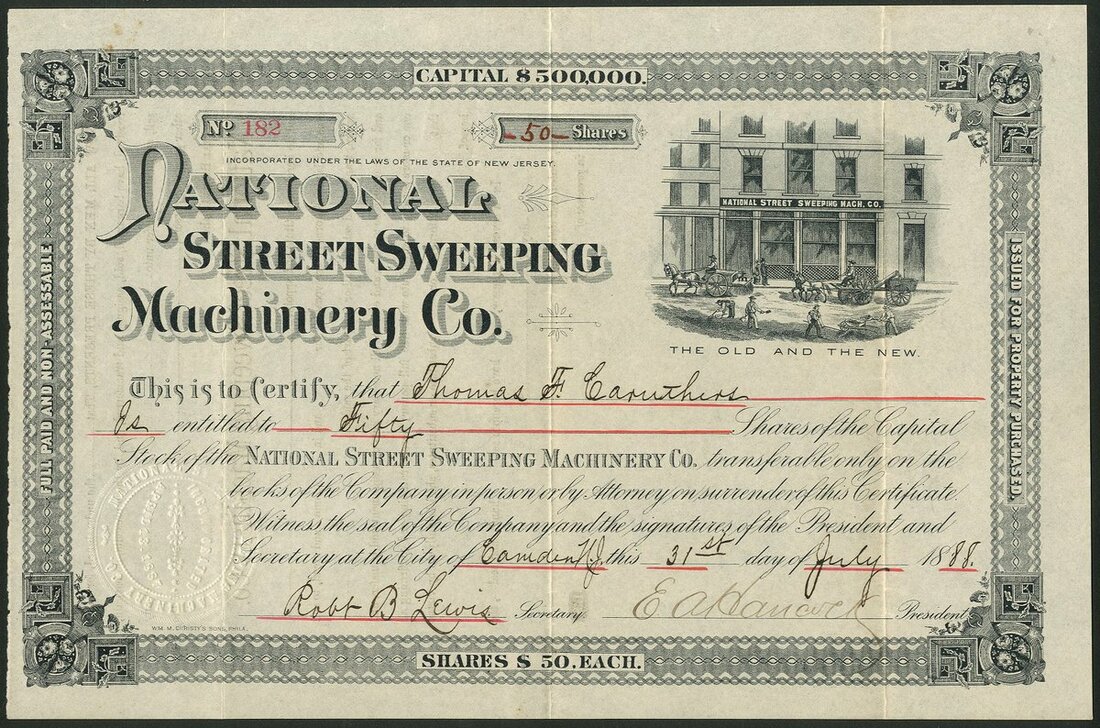 CAPITAL $500,000.
No 182
-50- Shares
INCORPORATED UNDER THE LAWS OF THE STATE OF NEW JERSEY.
NATIONAL
STREET SWEEPING
Machinery Co.
NATIONAL STREET SWEEPING MACH. CO.
THE OLD AND THE NEW.
FULL PAID AND NON-ASSESSABLE
ISSUED FOR PROPERTY PURCHASED.
This is to Certify, that Thomas F. Caruthers
Is entitled to Fifty Shares of the Capital
Stock of the NATIONAL STREET SWEEPING MACHINERY CO. transferable only on the
books of the Company in person or by Attorney on surrender of this Certificate.
Witness the seal of the Company and the signatures of the President and
Secretary at the City of Camden N.J. this 31st day of July 1888.
Robt B Lewis Secretary. E A Hancock President
WM. M. CHRISTY'S SONS, PHILA.
SHARES $ 50. EACH.